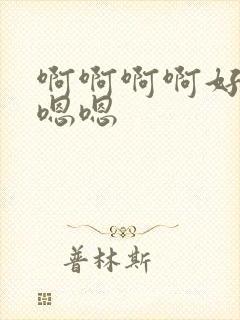 啊啊啊啊好
嗯嗯
普林斯